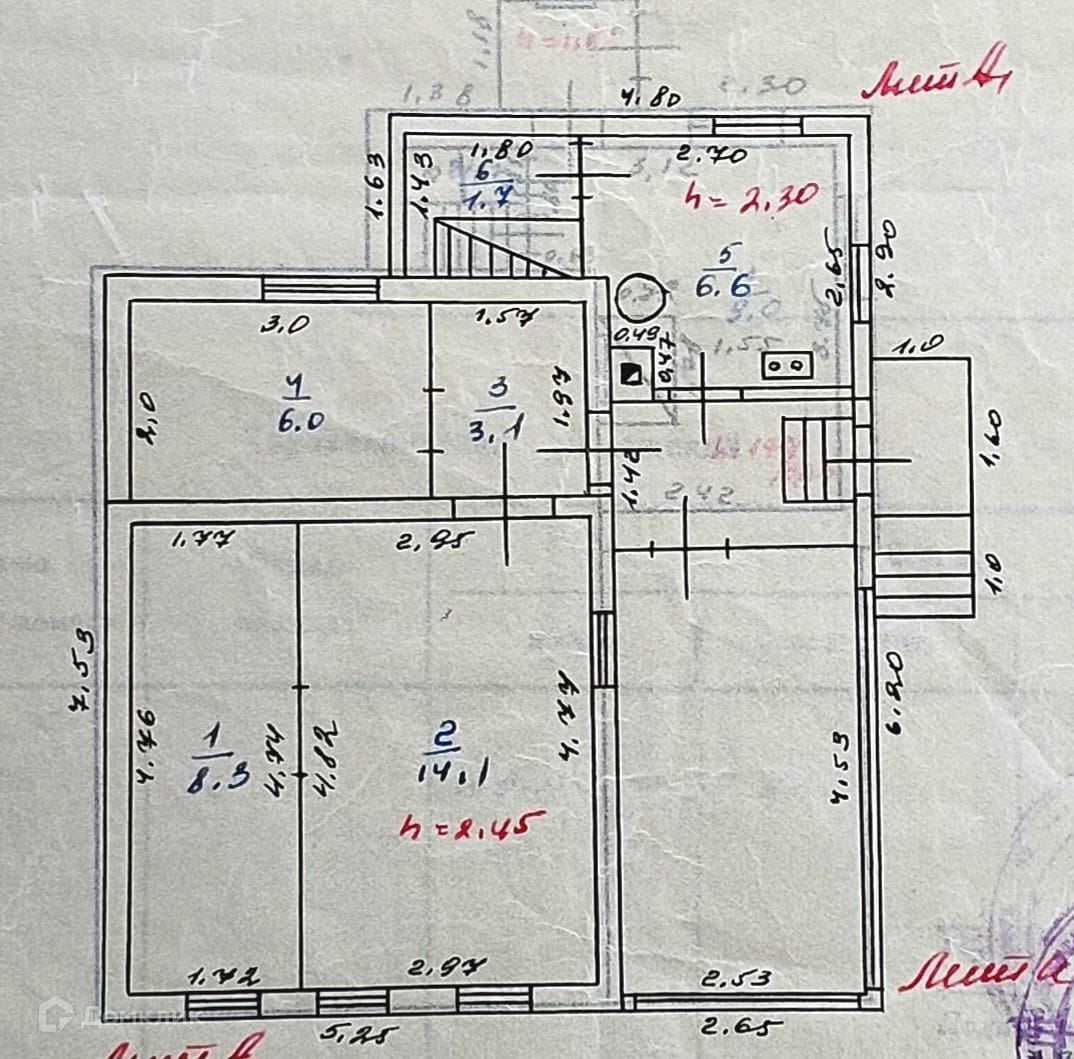 1.38
4.80
2.30
Лит А1
1.80
2.70
1.63
1.43
6
1.7
3.12
h = 2.30
5
6.6
2.65
2.90
3.0
1.57
0.49
0.47
1.55
1.0
4
6.0
2.0
3
3.1
1.94
1.42
2.42
1.90
1.77
2.95
1.0
7.53
4.76
1
8.3
4.74
4.82
2
14.1
4.74
h = 2.45
4.53
6.20
1.72
2.97
2.53
5.25
2.65
Лит а
Лит А
Домклик